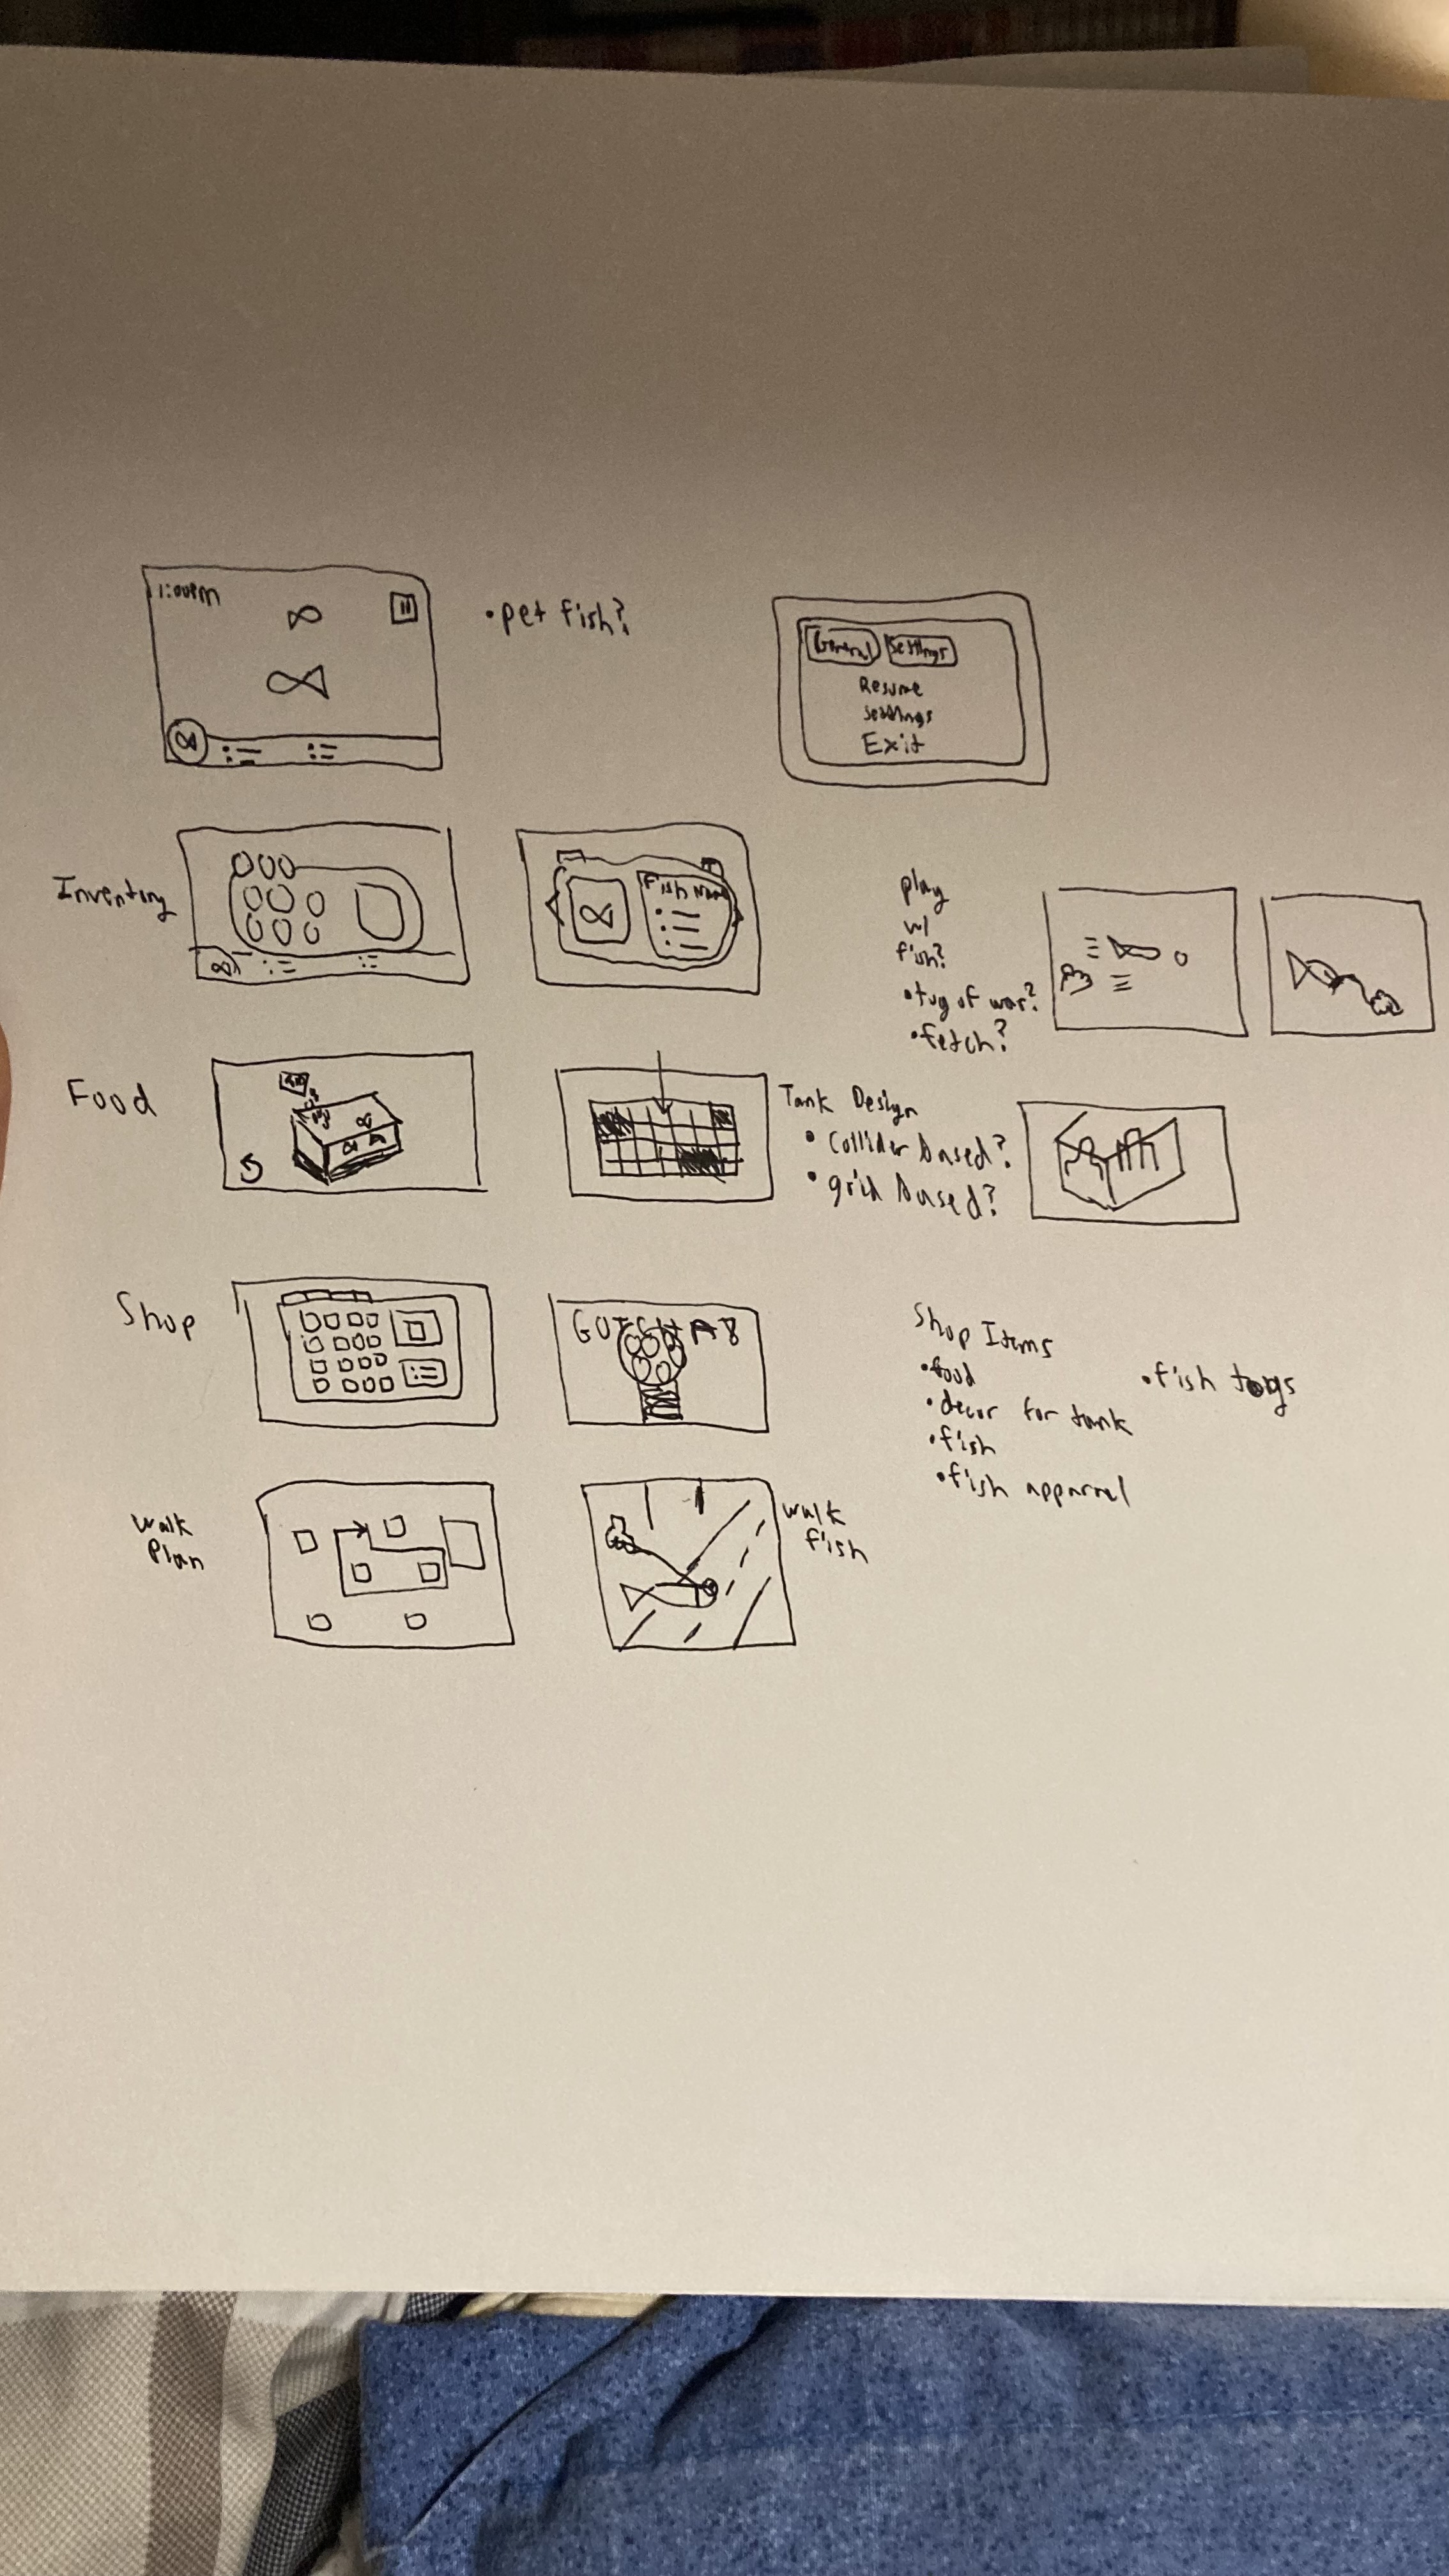 1:00PM
• pet fish?
General Settings
Resume
Settings
Exit
Inventory
Fish Name
play
w/
fish?
• tug of war?
• fetch?
Food
Tank Design
• collider based?
• grid based?
Shop
Shop Items
• food
• decor for tank
• fish
• fish apparal
• fish toys
Walk
Plan
walk
fish